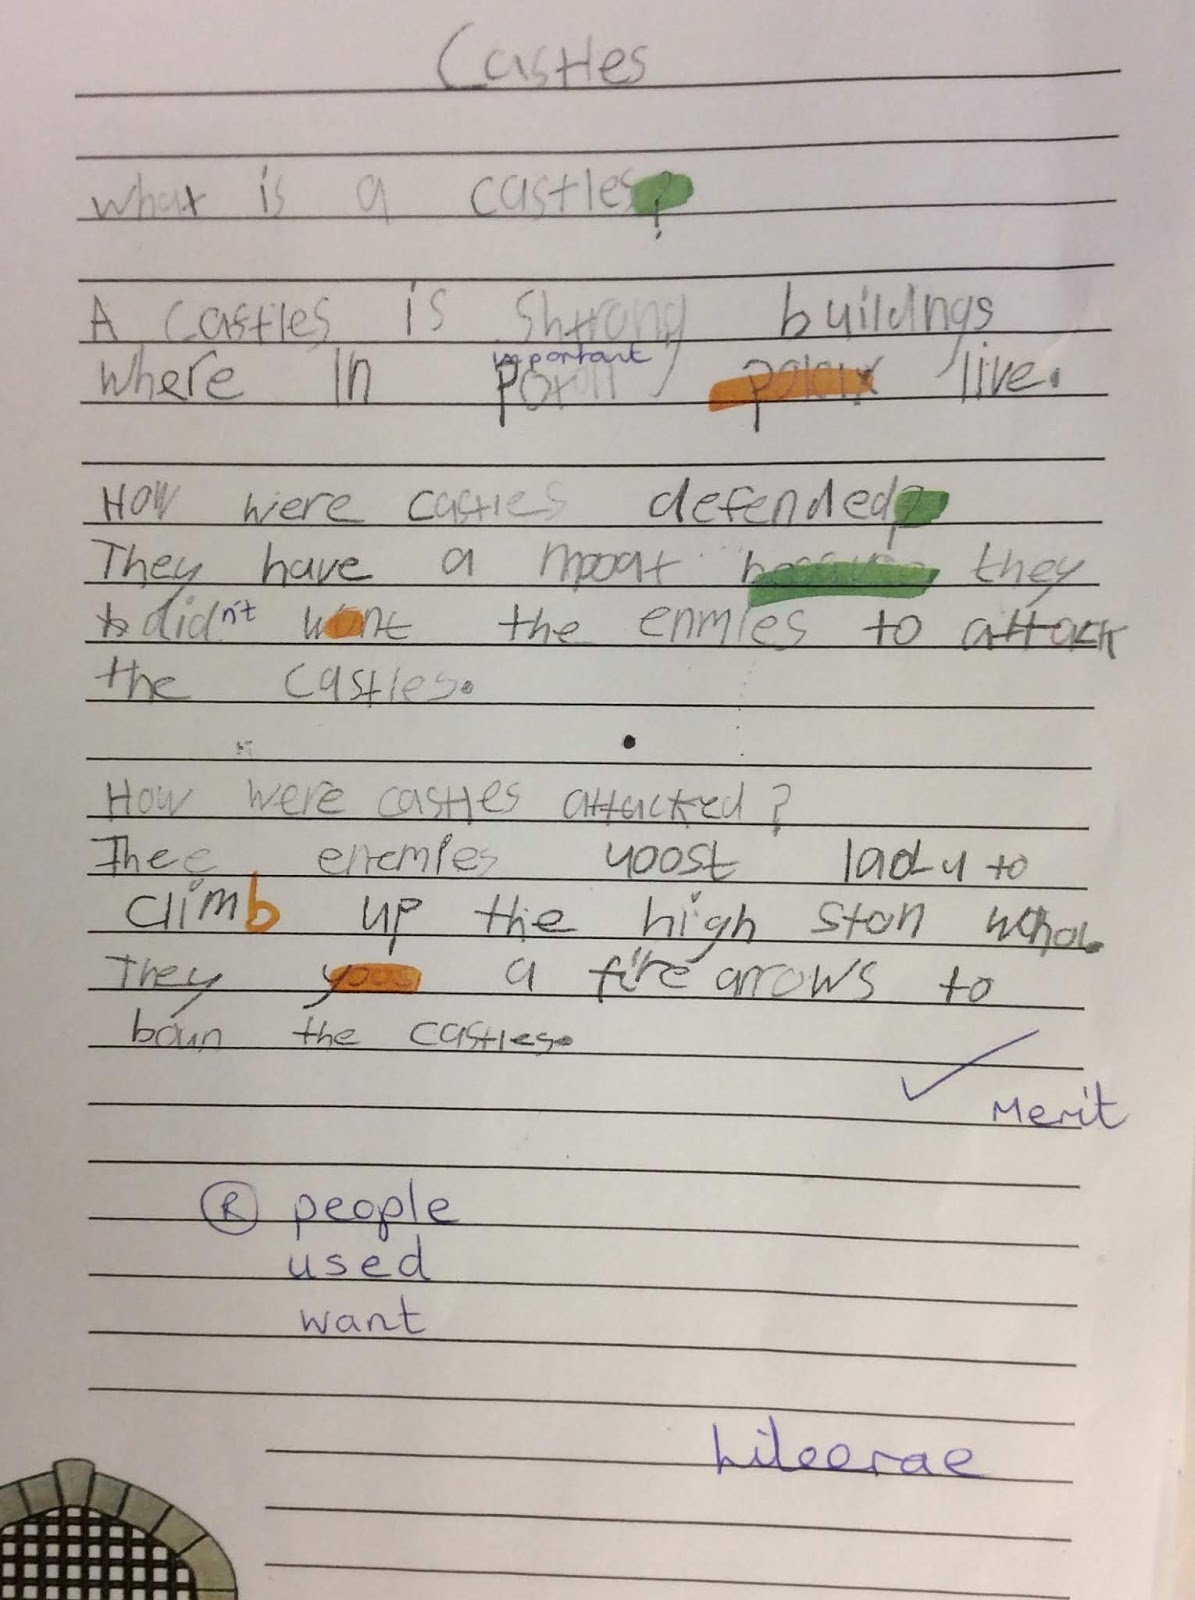 Castles
what is a castles?
A castles is shtrong buildngs
important
where in porn live.
How were castles defended?
They have a moat because they
didn't want the enmies to attack
the castles.
How were castles attacked?
Thee enemies yoost ladu to
climb up the high ston whol.
They yoos a fire arrows to
boun the castles.
Merit
R people
used
want